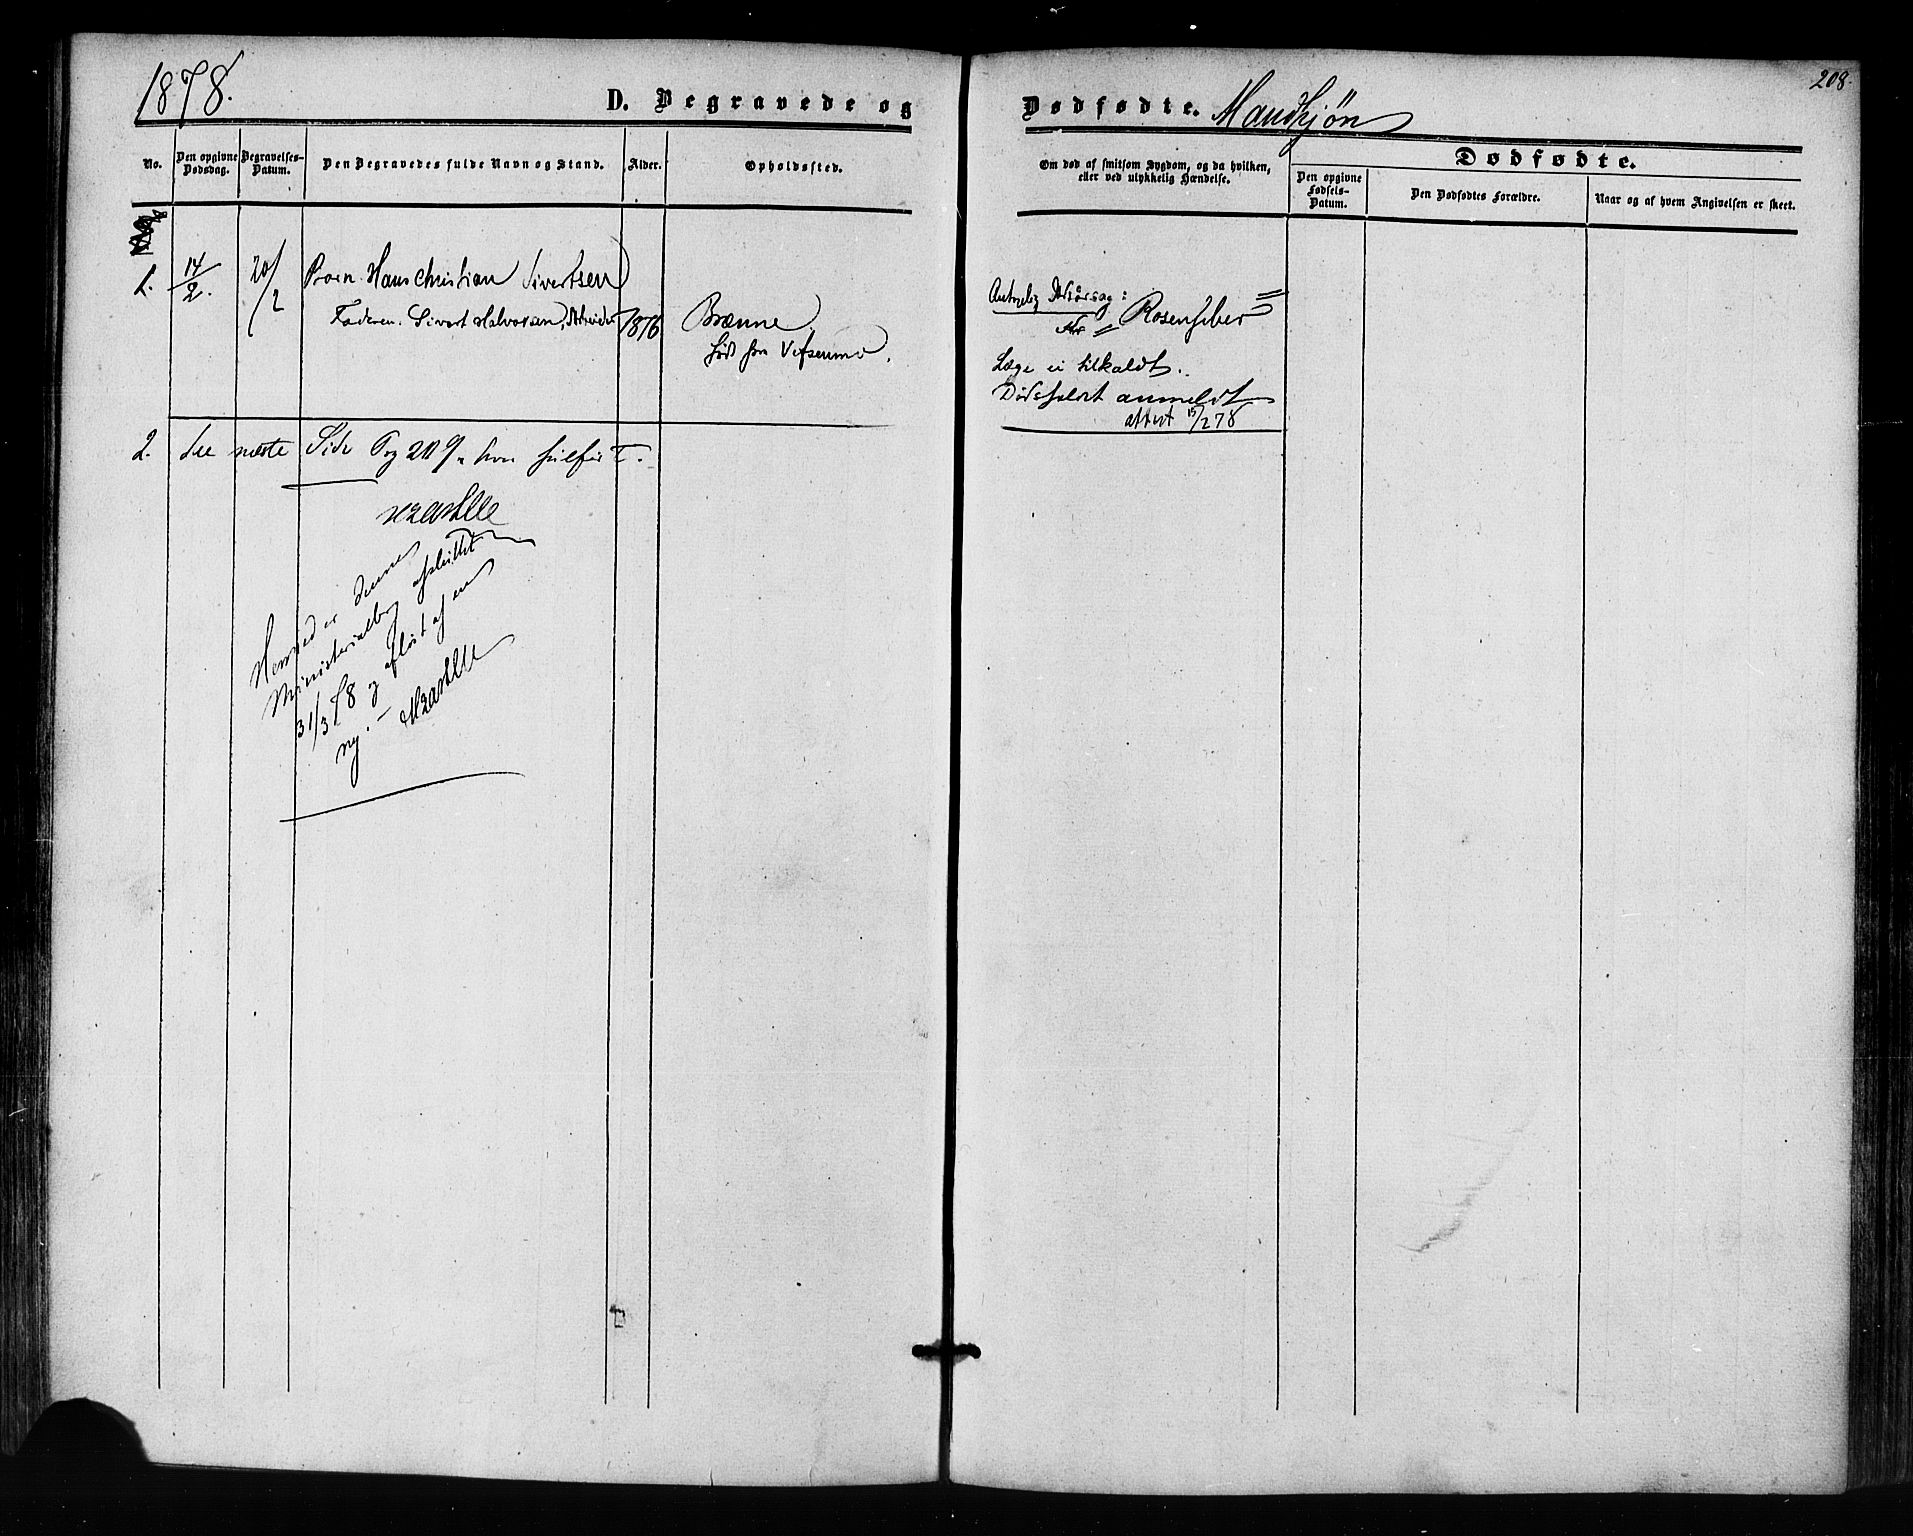 1878.
D. Begravede og
Dødfødte. Mandkjøn
208.
No.
Den opgivne Dødsdag.
Begravelses-Datum.
Den Begravedes fulde Navn og Stand.
Alder.
Opholdssted.
Om død af smitsom Sygdom, og da hvilken,
eller ved ulykkelig Hændelse.
Dødfødte.
Den opgivne Fødsels-Datum.
Den Dødfødtes Forældre.
Naar og af hvem Angivelsen er skeet.
1. 14/2. 20/2 Barn Hans Christian Sivertsen
Faderen. Sivert Halvorsen, Arbeider 1876 Brænne.
født paa Vefsenmo.
Antagelig Dødsårsag:
Rosenfeber
Læge ei tilkaldt.
Dødsfaldet anmeldt
attest 15/2 78
2. See næste Side Pag 209
Hermed er denne
Ministerialbog afsluttet
31/3 78 og afløst af en
ny.